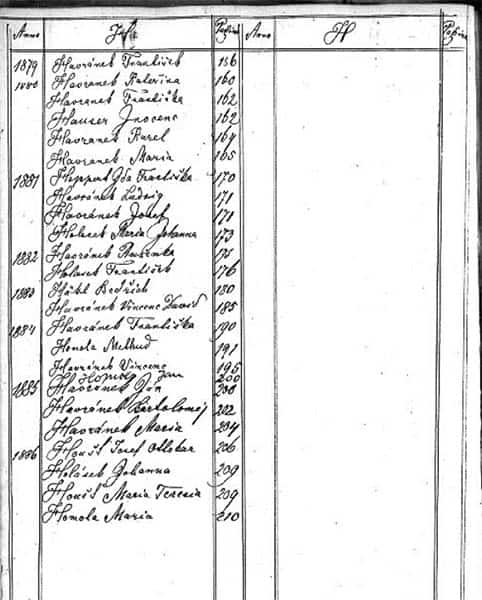 Anno H Pagina Anno H Pagina
1879 Havránek František 156
1880 Havranek Kateřina 160
Havranek Františka 162
Hauser Inocenc 162
Havranek Karel 164
Havranek Maria 165
1881 Heppert Ida Františka 170
Havránek Ludvig 171
Havránek Josef 171
Holasek Maria Johanna 173
1882 Havránek 175
Holasek František 176
1883 Hátl Bedřich 180
Havránek Vincenc David 185
1884 Havránek Františka 190
Homola Methud 191
Havránek Vincenc 195
Homola Jan 200
1885 Havranek Jan 200
Havránek Bartoloměj 202
Havránek Maria 204
1886 Houšť Josef Ottokar 206
Holásek Johanna 209
Houšť Maria Teresia 209
Homola Maria 210